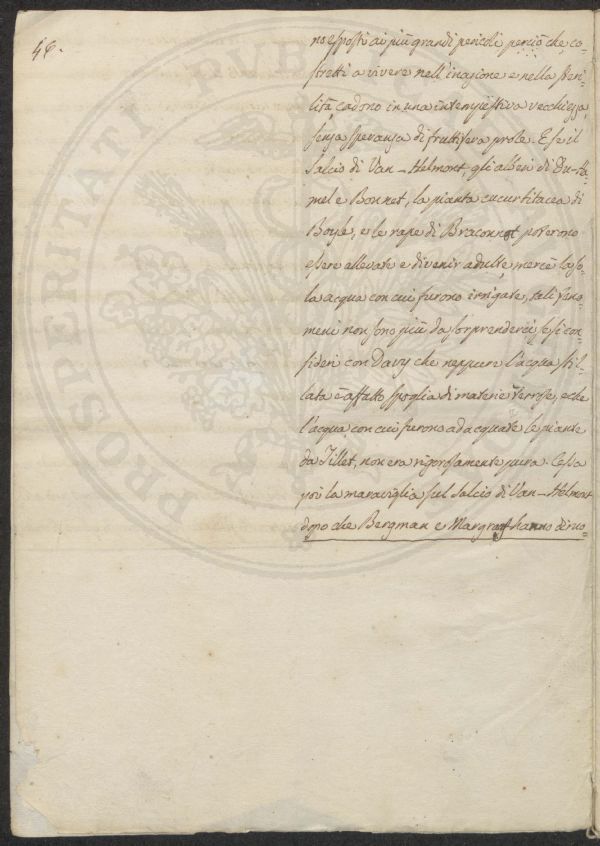 46.
no esposti ai più grandi pericoli perciò che, co-
stretti a vivere nell'inazione e nella steri-
lità cadono in una intempestiva vecchiezza,
senza speranza di fruttifera prole. E se il
Salcio di Van-Helmont, gli alberi di Du-ha-
mel e Bonnet, la pianta cucurbitacea di
Boyle, e le rape di Braconnot poterono
essere allevate e divenir adulte, mercè la so-
la acqua con cui furono irrigate, tali feno-
meni non sono più da sorprenderci se si con-
sideri con Davy che neppure l'acqua stil-
lata è affatto spoglia di materie terrose, e che
l'acqua con cui furono adacquate le piante
da Tillet, non era rigorosamente pura. Cessa
poi la maraviglia sul Salcio di Van-Helmont
dopo che Bergman e Margraf hanno dimo-
PROSPERITATI PUBLICAE